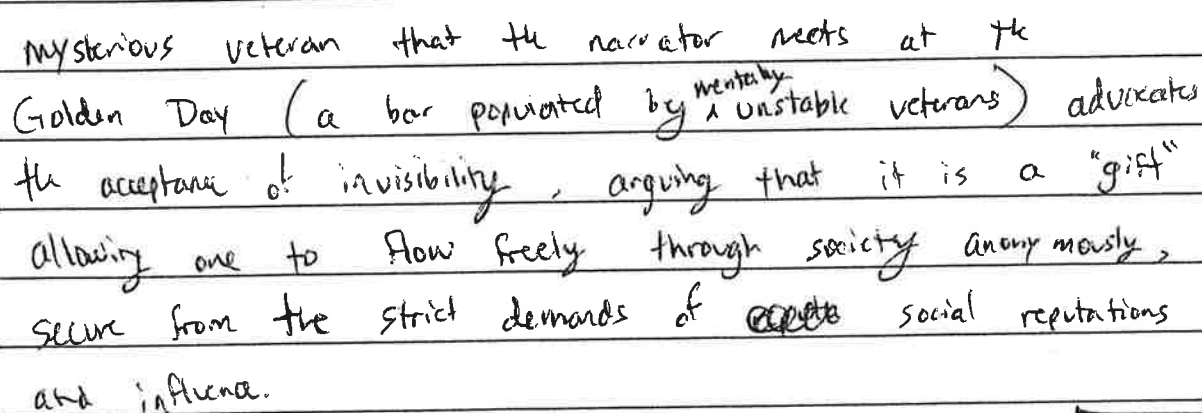 mysterious veteran that the narrator meets at the
Golden Day (a bar populated by mentally unstable veterans) advocates
the acceptance of invisibility, arguing that it is a "gift"
allowing one to flow freely through society anonymously,
secure from the strict demands of social reputations
and influence.